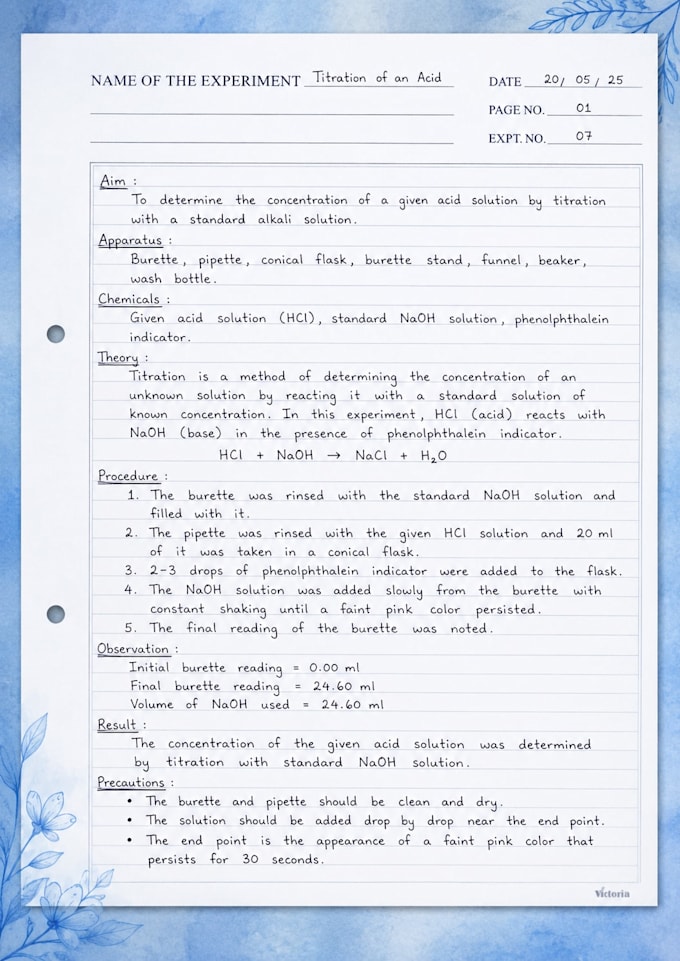 NAME OF THE EXPERIMENT Titration of an Acid
DATE 20/ 05 / 25
PAGE NO. 01
EXPT. NO. 07
Aim :
To determine the concentration of a given acid solution by titration
with a standard alkali solution.
Apparatus :
Burette, pipette, conical flask, burette stand, funnel, beaker,
wash bottle.
Chemicals :
Given acid solution (HCl), standard NaOH solution, phenolphthalein
indicator.
Theory :
Titration is a method of determining the concentration of an
unknown solution by reacting it with a standard solution of
known concentration. In this experiment, HCl (acid) reacts with
NaOH (base) in the presence of phenolphthalein indicator.
HCl + NaOH → NaCl + H₂O
Procedure :
1. The burette was rinsed with the standard NaOH solution and
filled with it.
2. The pipette was rinsed with the given HCl solution and 20 ml
of it was taken in a conical flask.
3. 2-3 drops of phenolphthalein indicator were added to the flask.
4. The NaOH solution was added slowly from the burette with
constant shaking until a faint pink color persisted.
5. The final reading of the burette was noted.
Observation :
Initial burette reading = 0.00 ml
Final burette reading = 24.60 ml
Volume of NaOH used = 24.60 ml
Result :
The concentration of the given acid solution was determined
by titration with standard NaOH solution.
Precautions :
• The burette and pipette should be clean and dry.
• The solution should be added drop by drop near the end point.
• The end point is the appearance of a faint pink color that
persists for 30 seconds.
Victoria